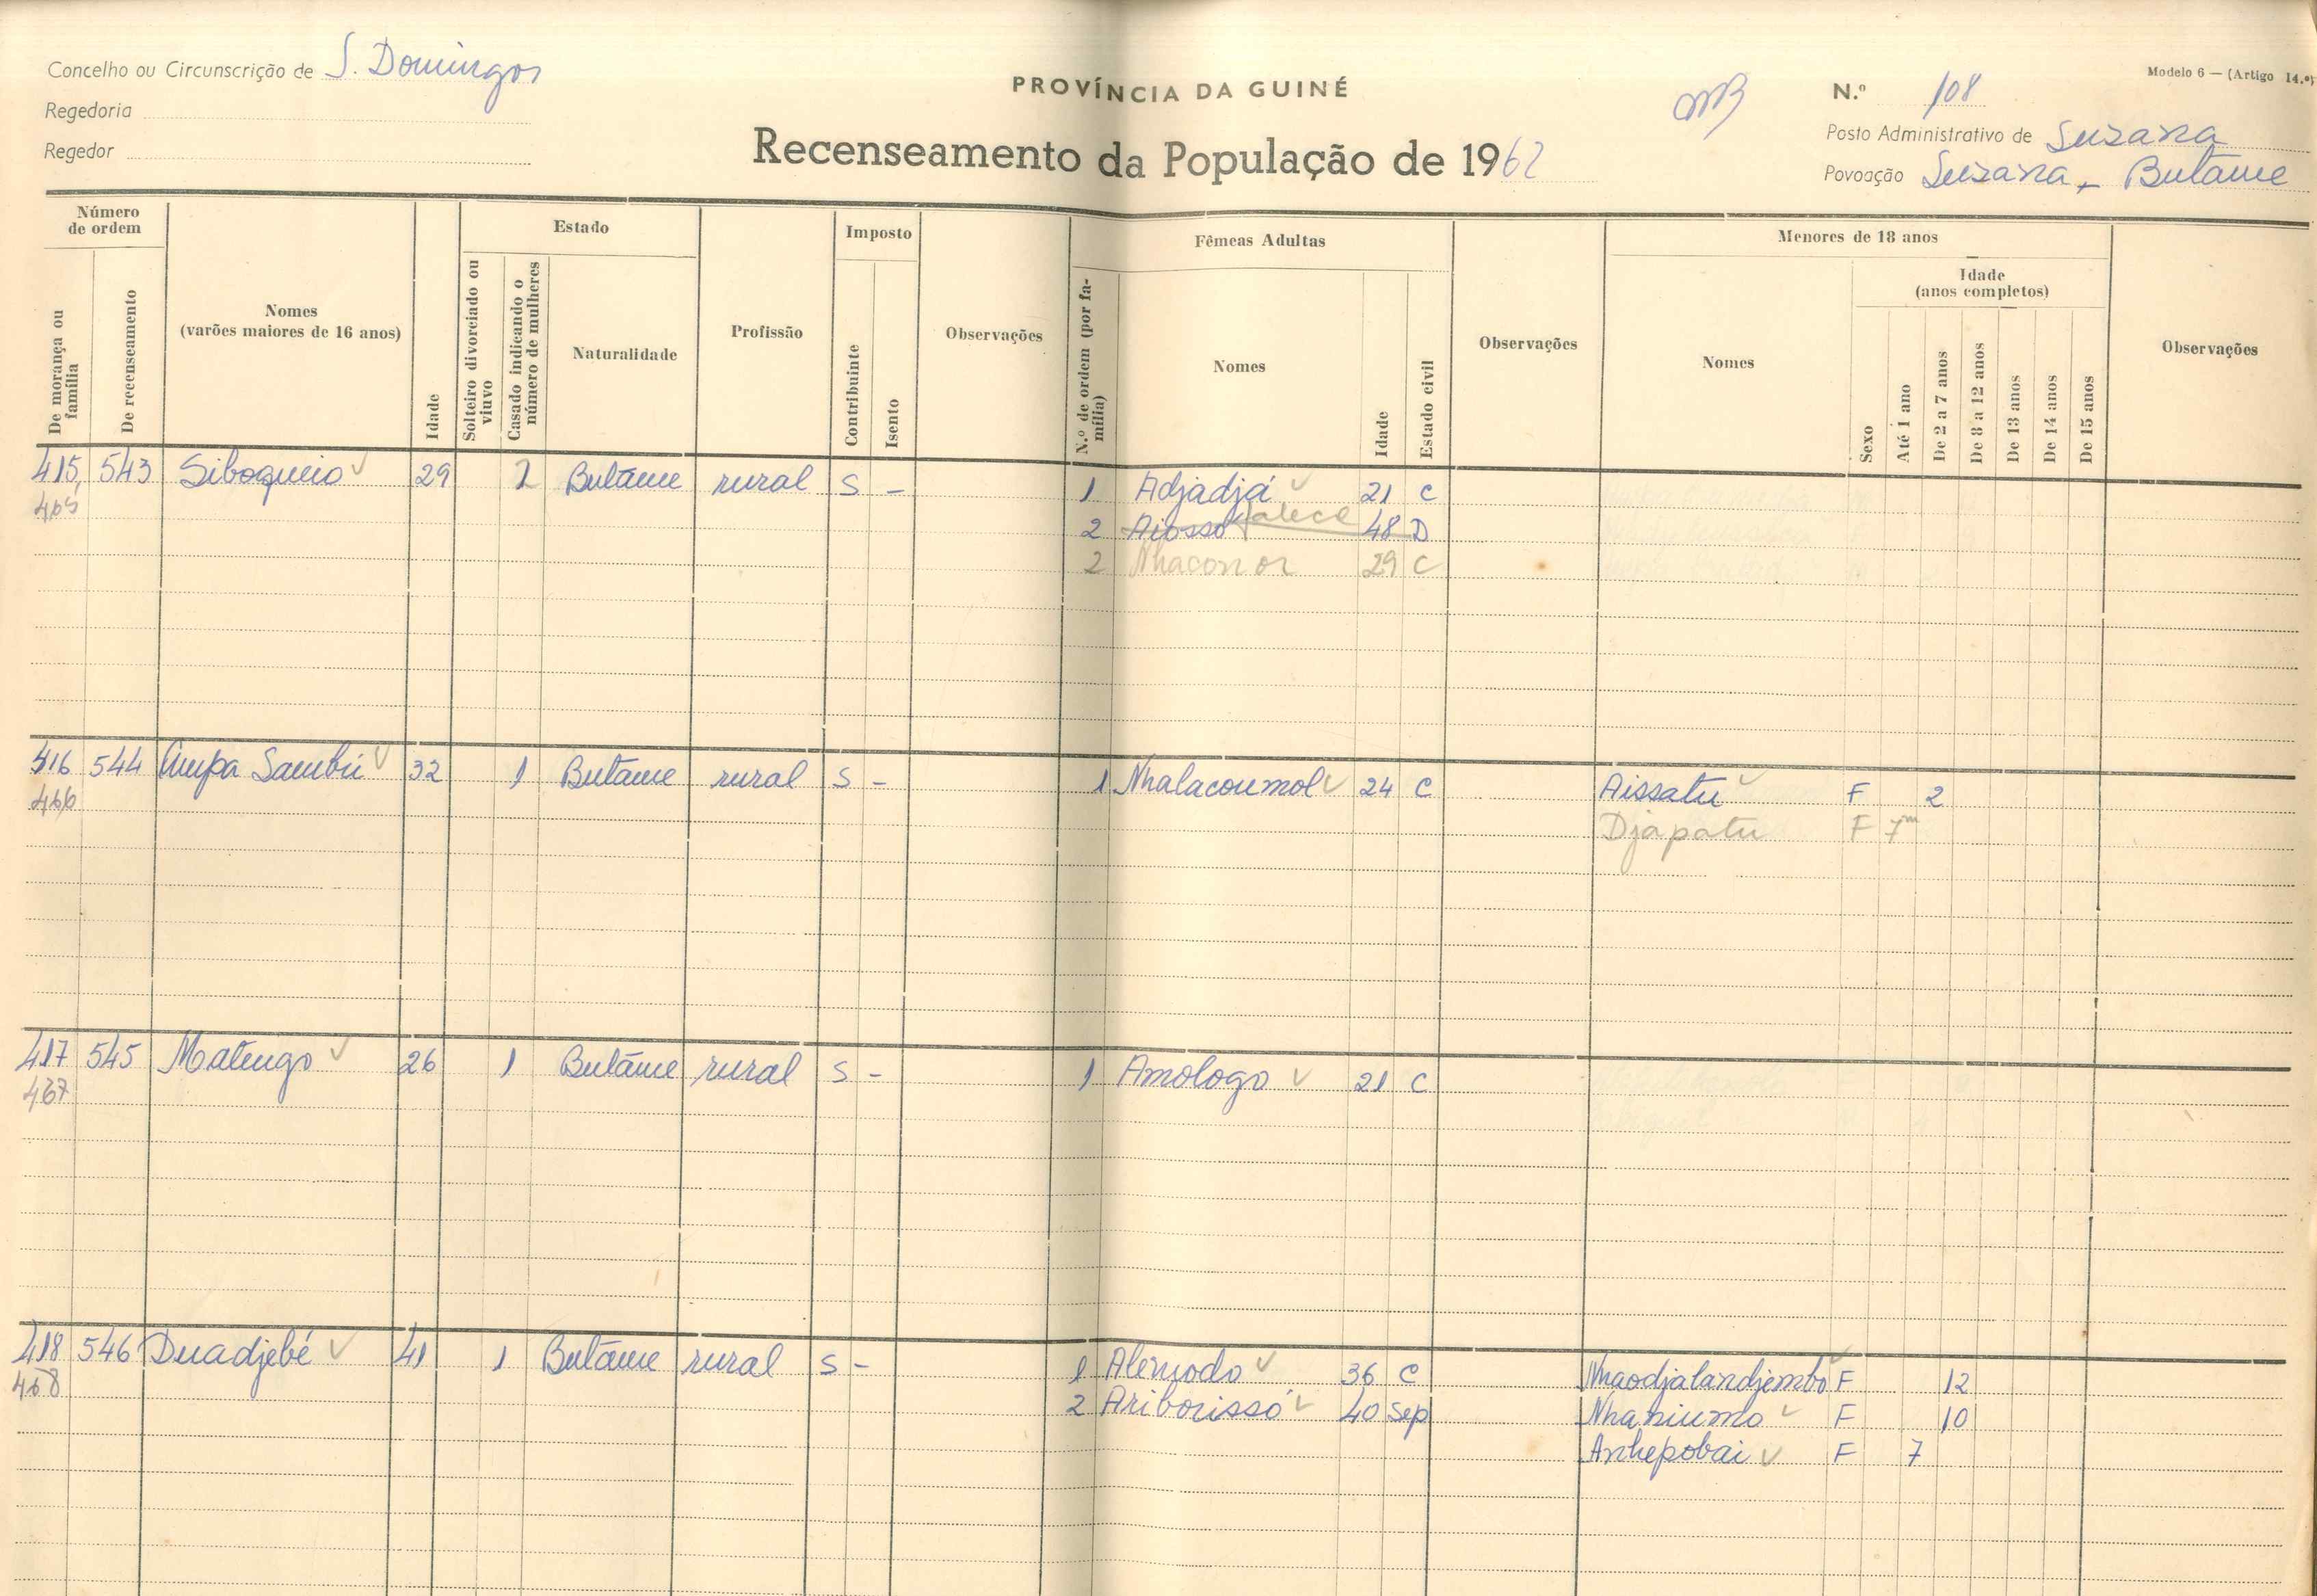 Concelho ou Circunscrição de S. Domingos
Regedoria
Regedor
PROVÍNCIA DA GUINÉ
Recenseamento da População de 1962
Modelo 6 — (Artigo 14.º)
N.º 108
Posto Administrativo de Suzana
Povoação Suzana - Butame
Número de ordem
De morança ou família
De recenseamento
Nomes (varões maiores de 16 anos)
Idade
Estado
Solteiro divorciado ou viuvo
Casado indicando o número de mulheres
Naturalidade
Profissão
Imposto
Contribuinte
Isento
Observações
N.º de ordem (por família)
Fêmeas Adultas
Nomes
Idade
Estado civil
Observações
Menores de 18 anos
Nomes
Sexo
Idade (anos completos)
Até 1 ano
De 2 a 7 anos
De 8 a 12 anos
De 13 anos
De 14 anos
De 15 anos
Observações
415 543 Siboqueio 29 2 Butame rural S - 1 Adjadjá 21 C
465 2 Aiosso falece 48 D
2 Nhaconor 29 C
416 544 Ampa Sambú 32 1 Butame rural S - 1 Nhalacoumol 24 C Aissatu F 2
466 Djapatu F 7m
417 545 Matengo 26 1 Butame rural S - 1 Amologo 21 C
467
418 546 Duadjebé 41 1 Butame rural S - 1 Alemodo 36 C Nhaodjalandjembo F 12
468 2 Ariborissó 40 Sep Nhaniumo F 10
Anhepobai F 7